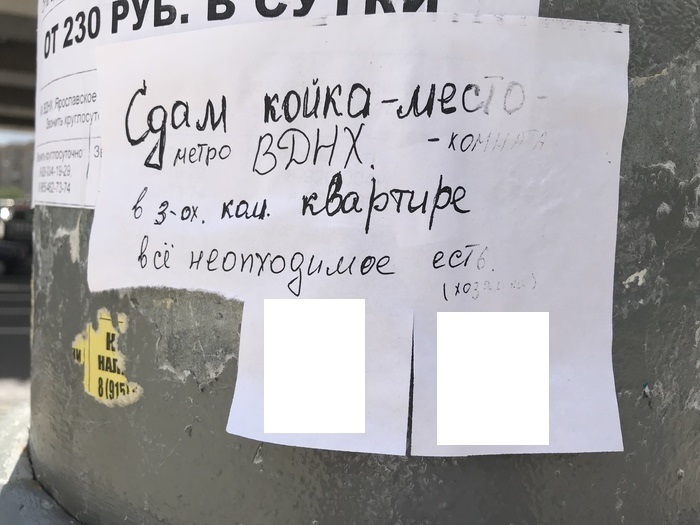 ОТ 230 РУБ. В СУТКИ
ВДНХ, Ярославское
Звонить круглосут
Сдам койка-место-
метро ВДНХ. -комната
в 3-ох. ком. квартире
всё неопходимое есть.
(хозяйка)
К
НАЛ
8(915)